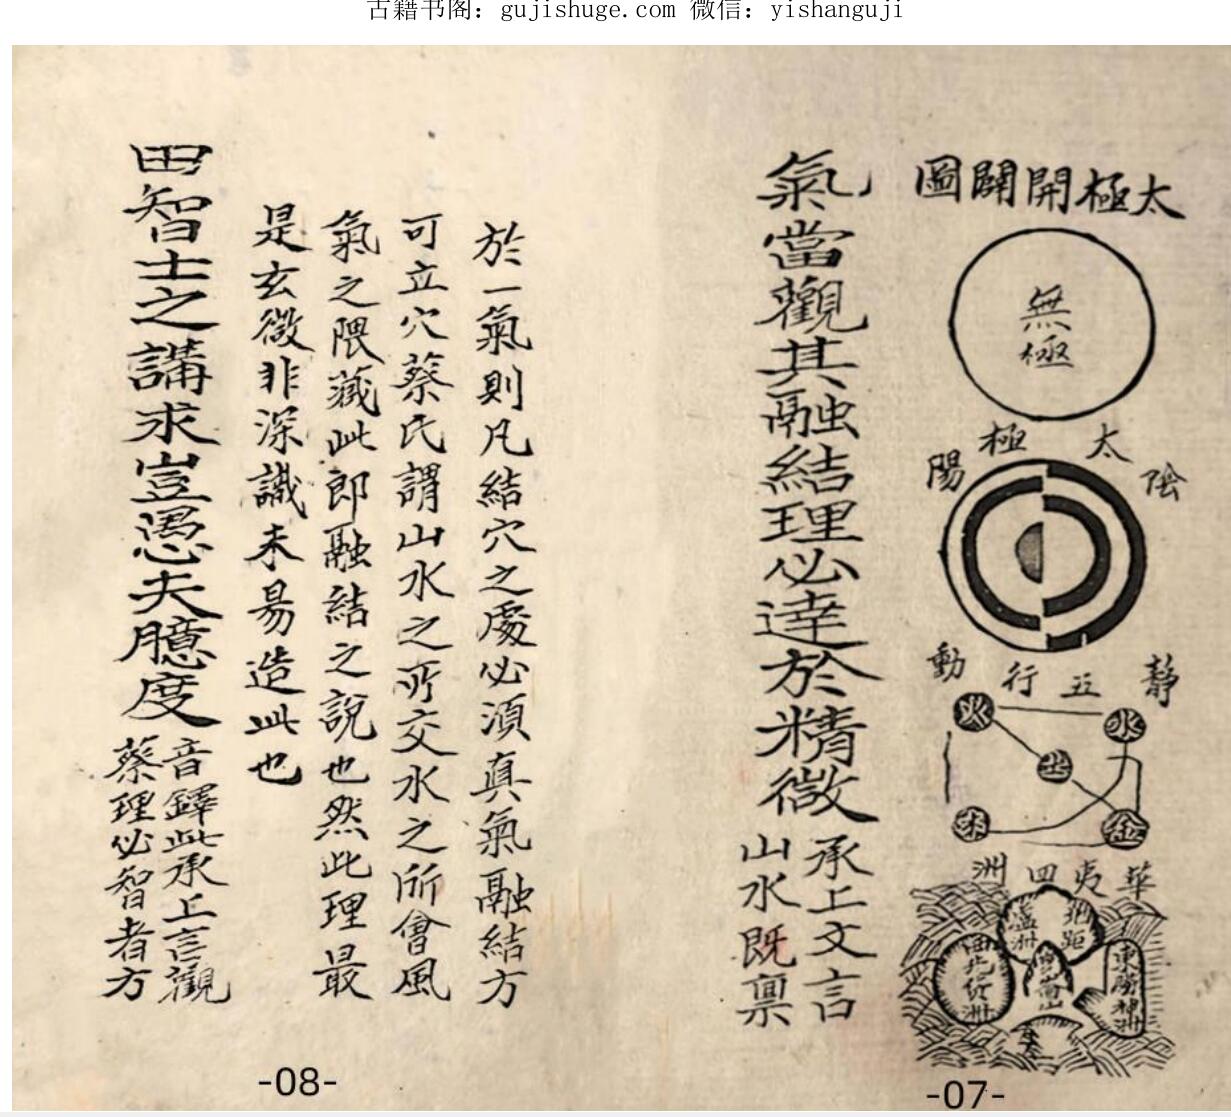 古籍书阁：gujishuge.com 微信：yishanguji
太極開闢圖
無極
太極
陰
陽
靜
動
五行
水
火
土
金
木
華夷四洲
東勝神洲
氣當觀其融結理必達於精微
承上文言
山水既禀
於一氣則凡結穴之處必須真氣融結方
可立穴蔡氏謂山水之所交水之所會風
氣之隈藏此郎融結之說也然此理最
是玄微非深識未易造此也
由智士之講求豈愚夫臆度
音鐸此承上言觀
蔡理必智者方
-07-
-08-